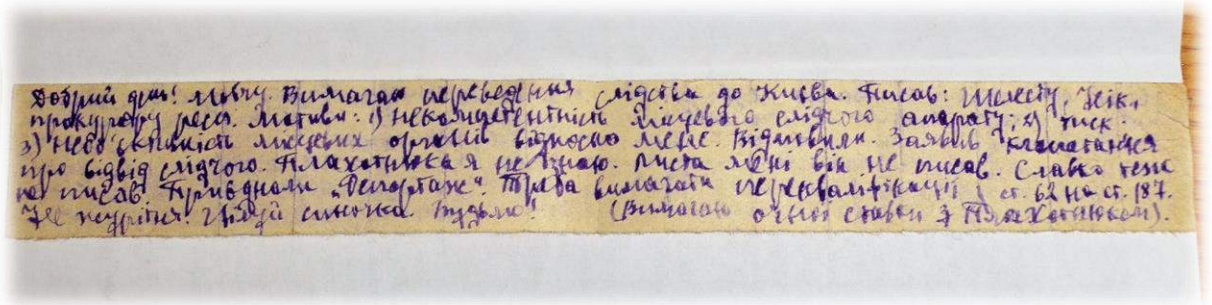 Добрий день! Мовчу. Вимагаю переведення слідства до Києва. Писав: Шелесту,
прокурору респ. Мотиви: 1) некомпетентність місцевого слідчого апарату; 2) тиск.
3) необ'єктивність місцевих органів відносно мене. Відмовили. Заявив клопотання
про відвід слідчого. Плахотнюка я не знаю. Листа мені він не писав. Славко теж
не писав. Приєднали „Репортаж". Треба вимагати перекваліфікації з ст. 62 на ст. 187.
Не журіться. Цілуй синочка. Будьмо! (Вимагаю очної ставки з Плахотнюком).